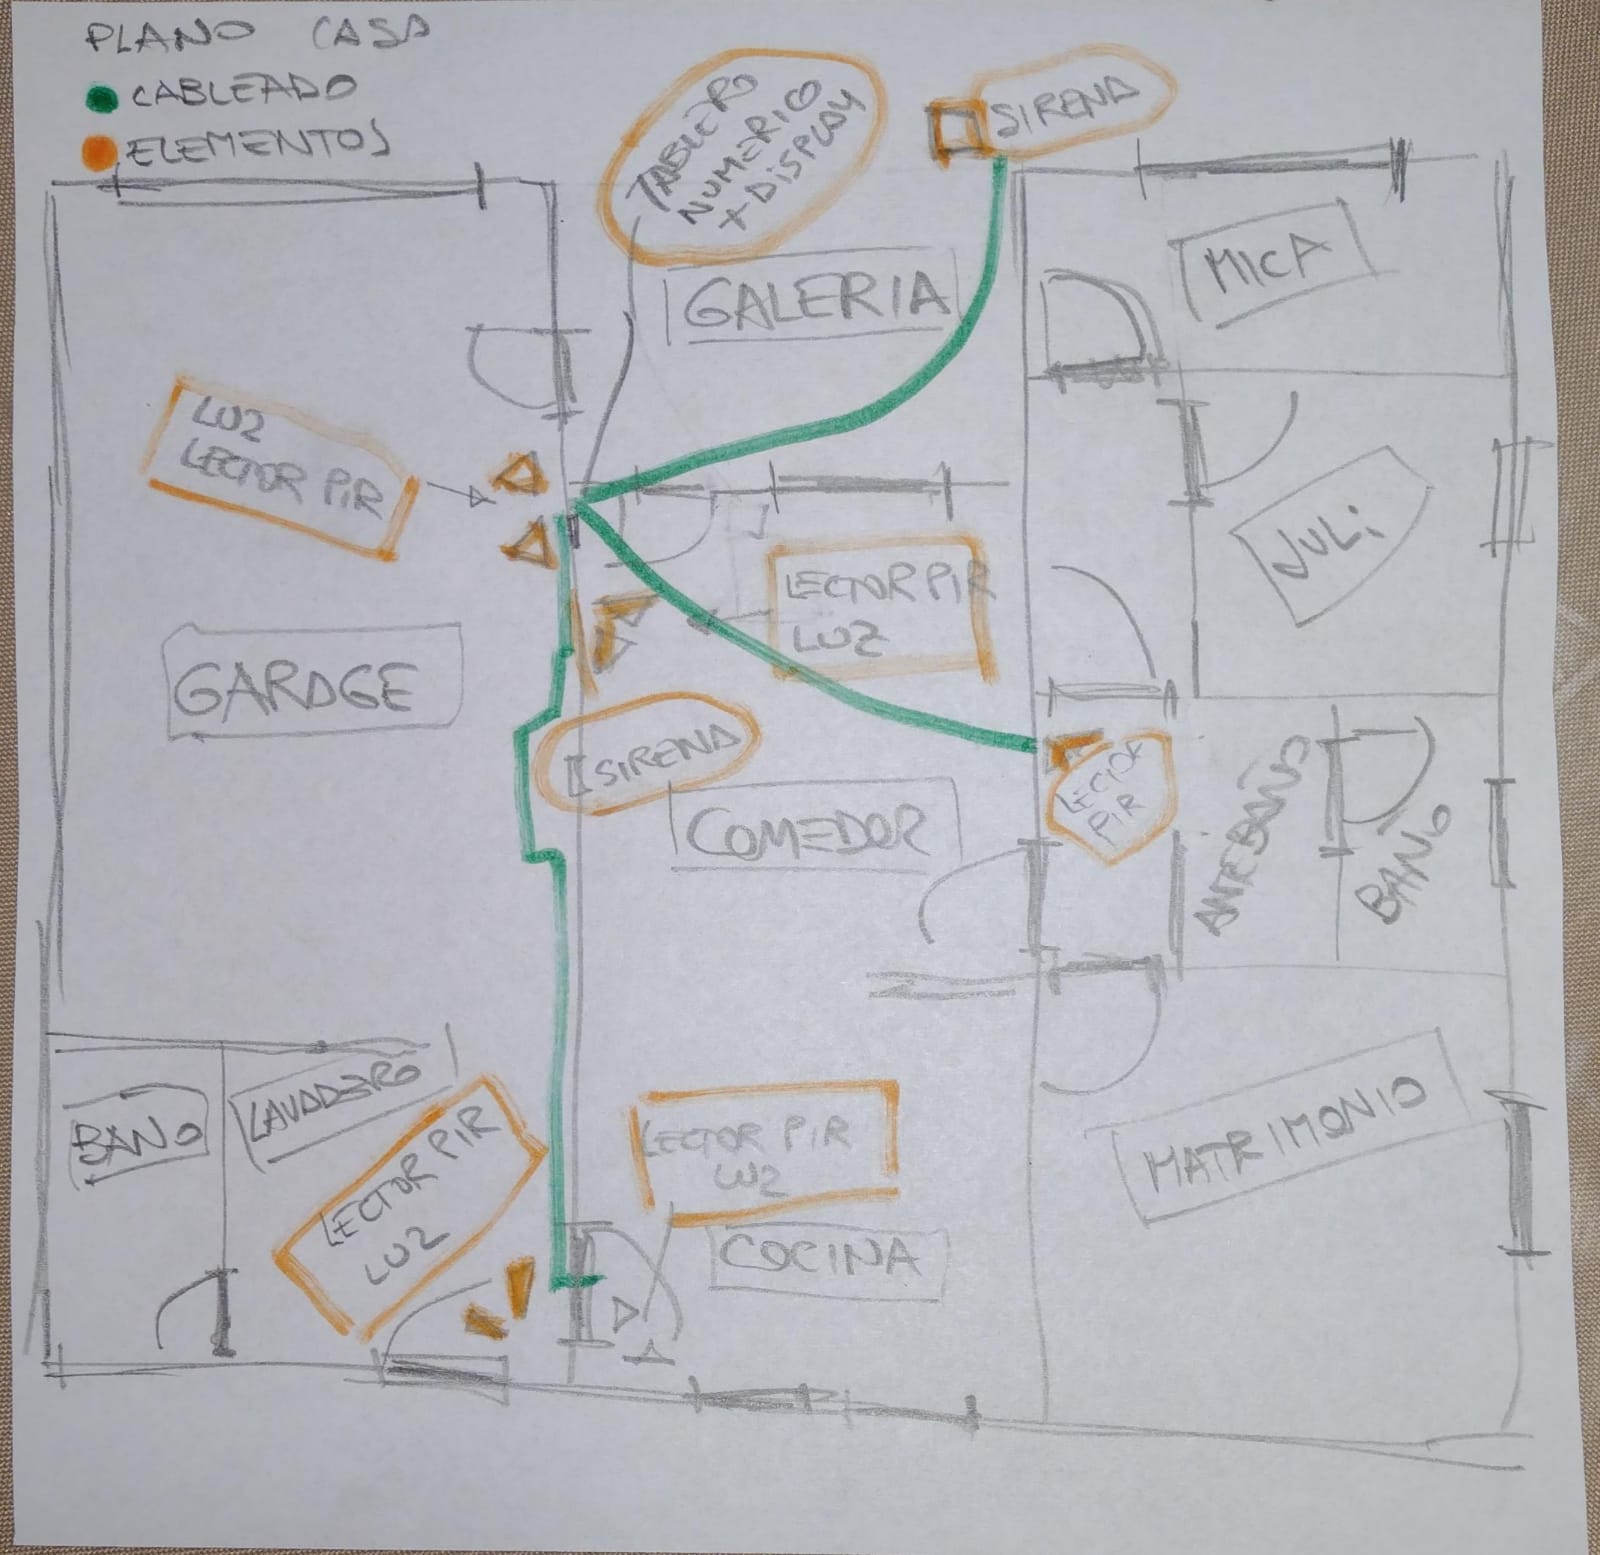 PLANO CASA
CABLEADO
ELEMENTOS
TABLERO
NUMERICO
+ DISPLAY
SIRENA
GALERIA
MICA
LUZ
LECTOR PIR
JULI
LECTOR PIR
LUZ
GARAGE
SIRENA
LECTOR
PIR
COMEDOR
ANTEBAÑO
BAÑO
BAÑO
LAVADERO
LECTOR PIR
LUZ
LECTOR PIR
LUZ
COCINA
MATRIMONIO